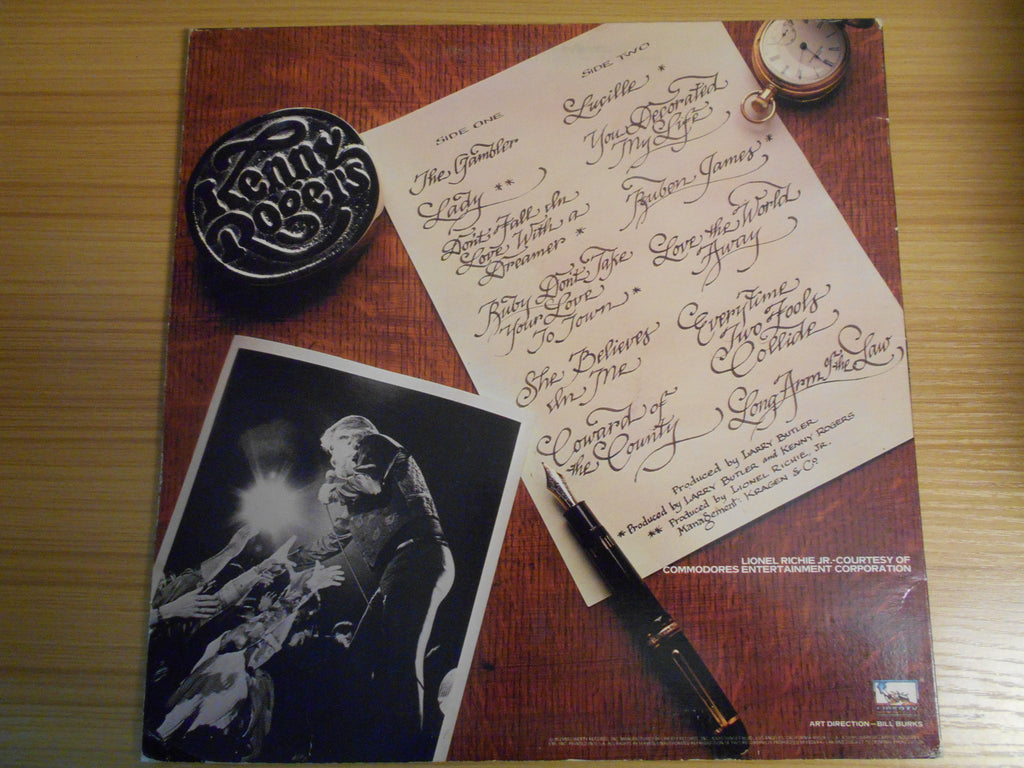 Kenny
Rogers
SIDE ONE
The Gambler
Lady **
Don't Fall In
Love With a
Dreamer *
Ruby Don't Take
Your Love
To Town *
She Believes
In Me
Coward of
the County
SIDE TWO
Lucille *
You Decorated
My Life
Ruben James *
Love the World
Away
Everytime
Two Fools
Collide
Long Arm of the Law
Produced by LARRY BUTLER
* Produced by LARRY BUTLER and KENNY ROGERS
** Produced by LIONEL RICHIE, JR.
Management: KRAGEN & Co.
LIONEL RICHIE JR.-COURTESY OF
COMMODORES ENTERTAINMENT CORPORATION
LIBERTY
ART DIRECTION—BILL BURKS